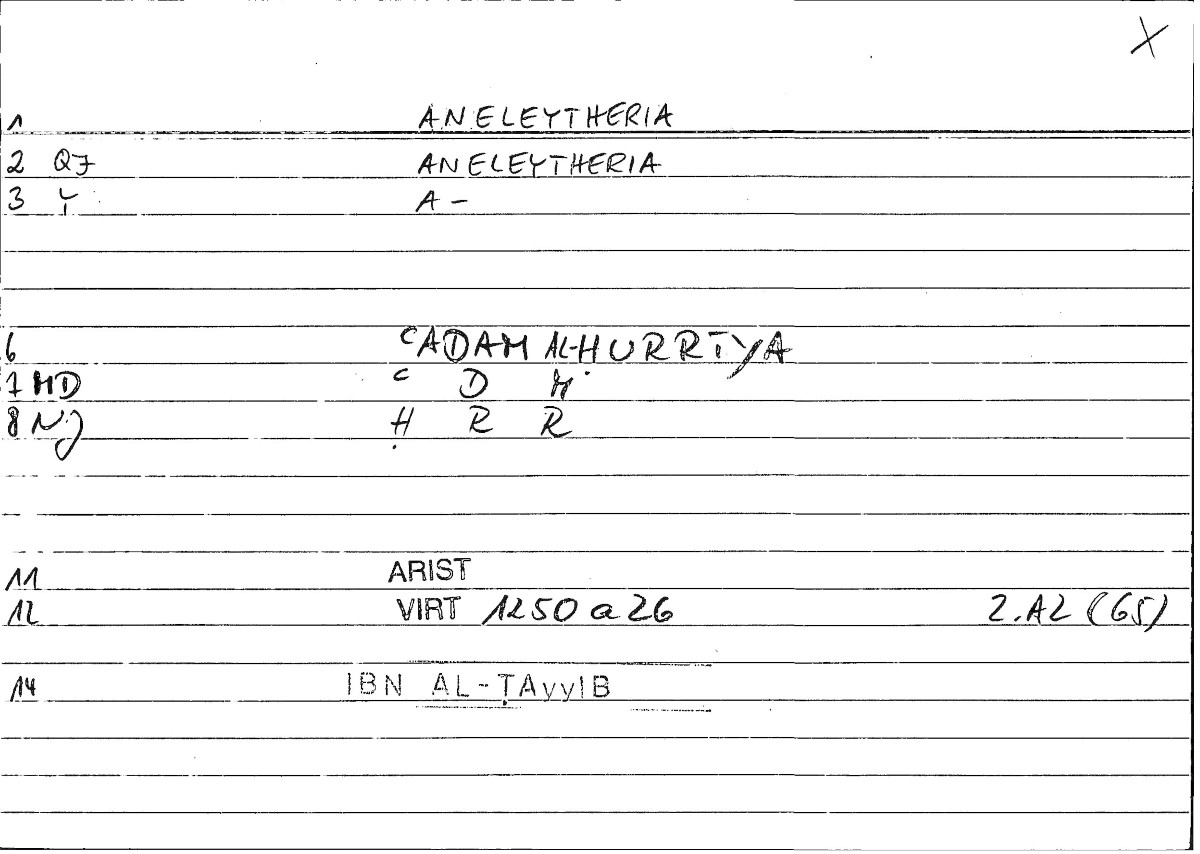 X
1 ANELEYTHERIA
2 QJ ANELEYTHERIA
3 Y A -
6 ᶜADAM AL-ḤURRĪYA
7 MD ᶜ D M
8 NJ Ḥ R R
11 ARIST
12 VIRT 1250 a 26 2.A2 (65)
14 IBN AL-ṬAyyIB